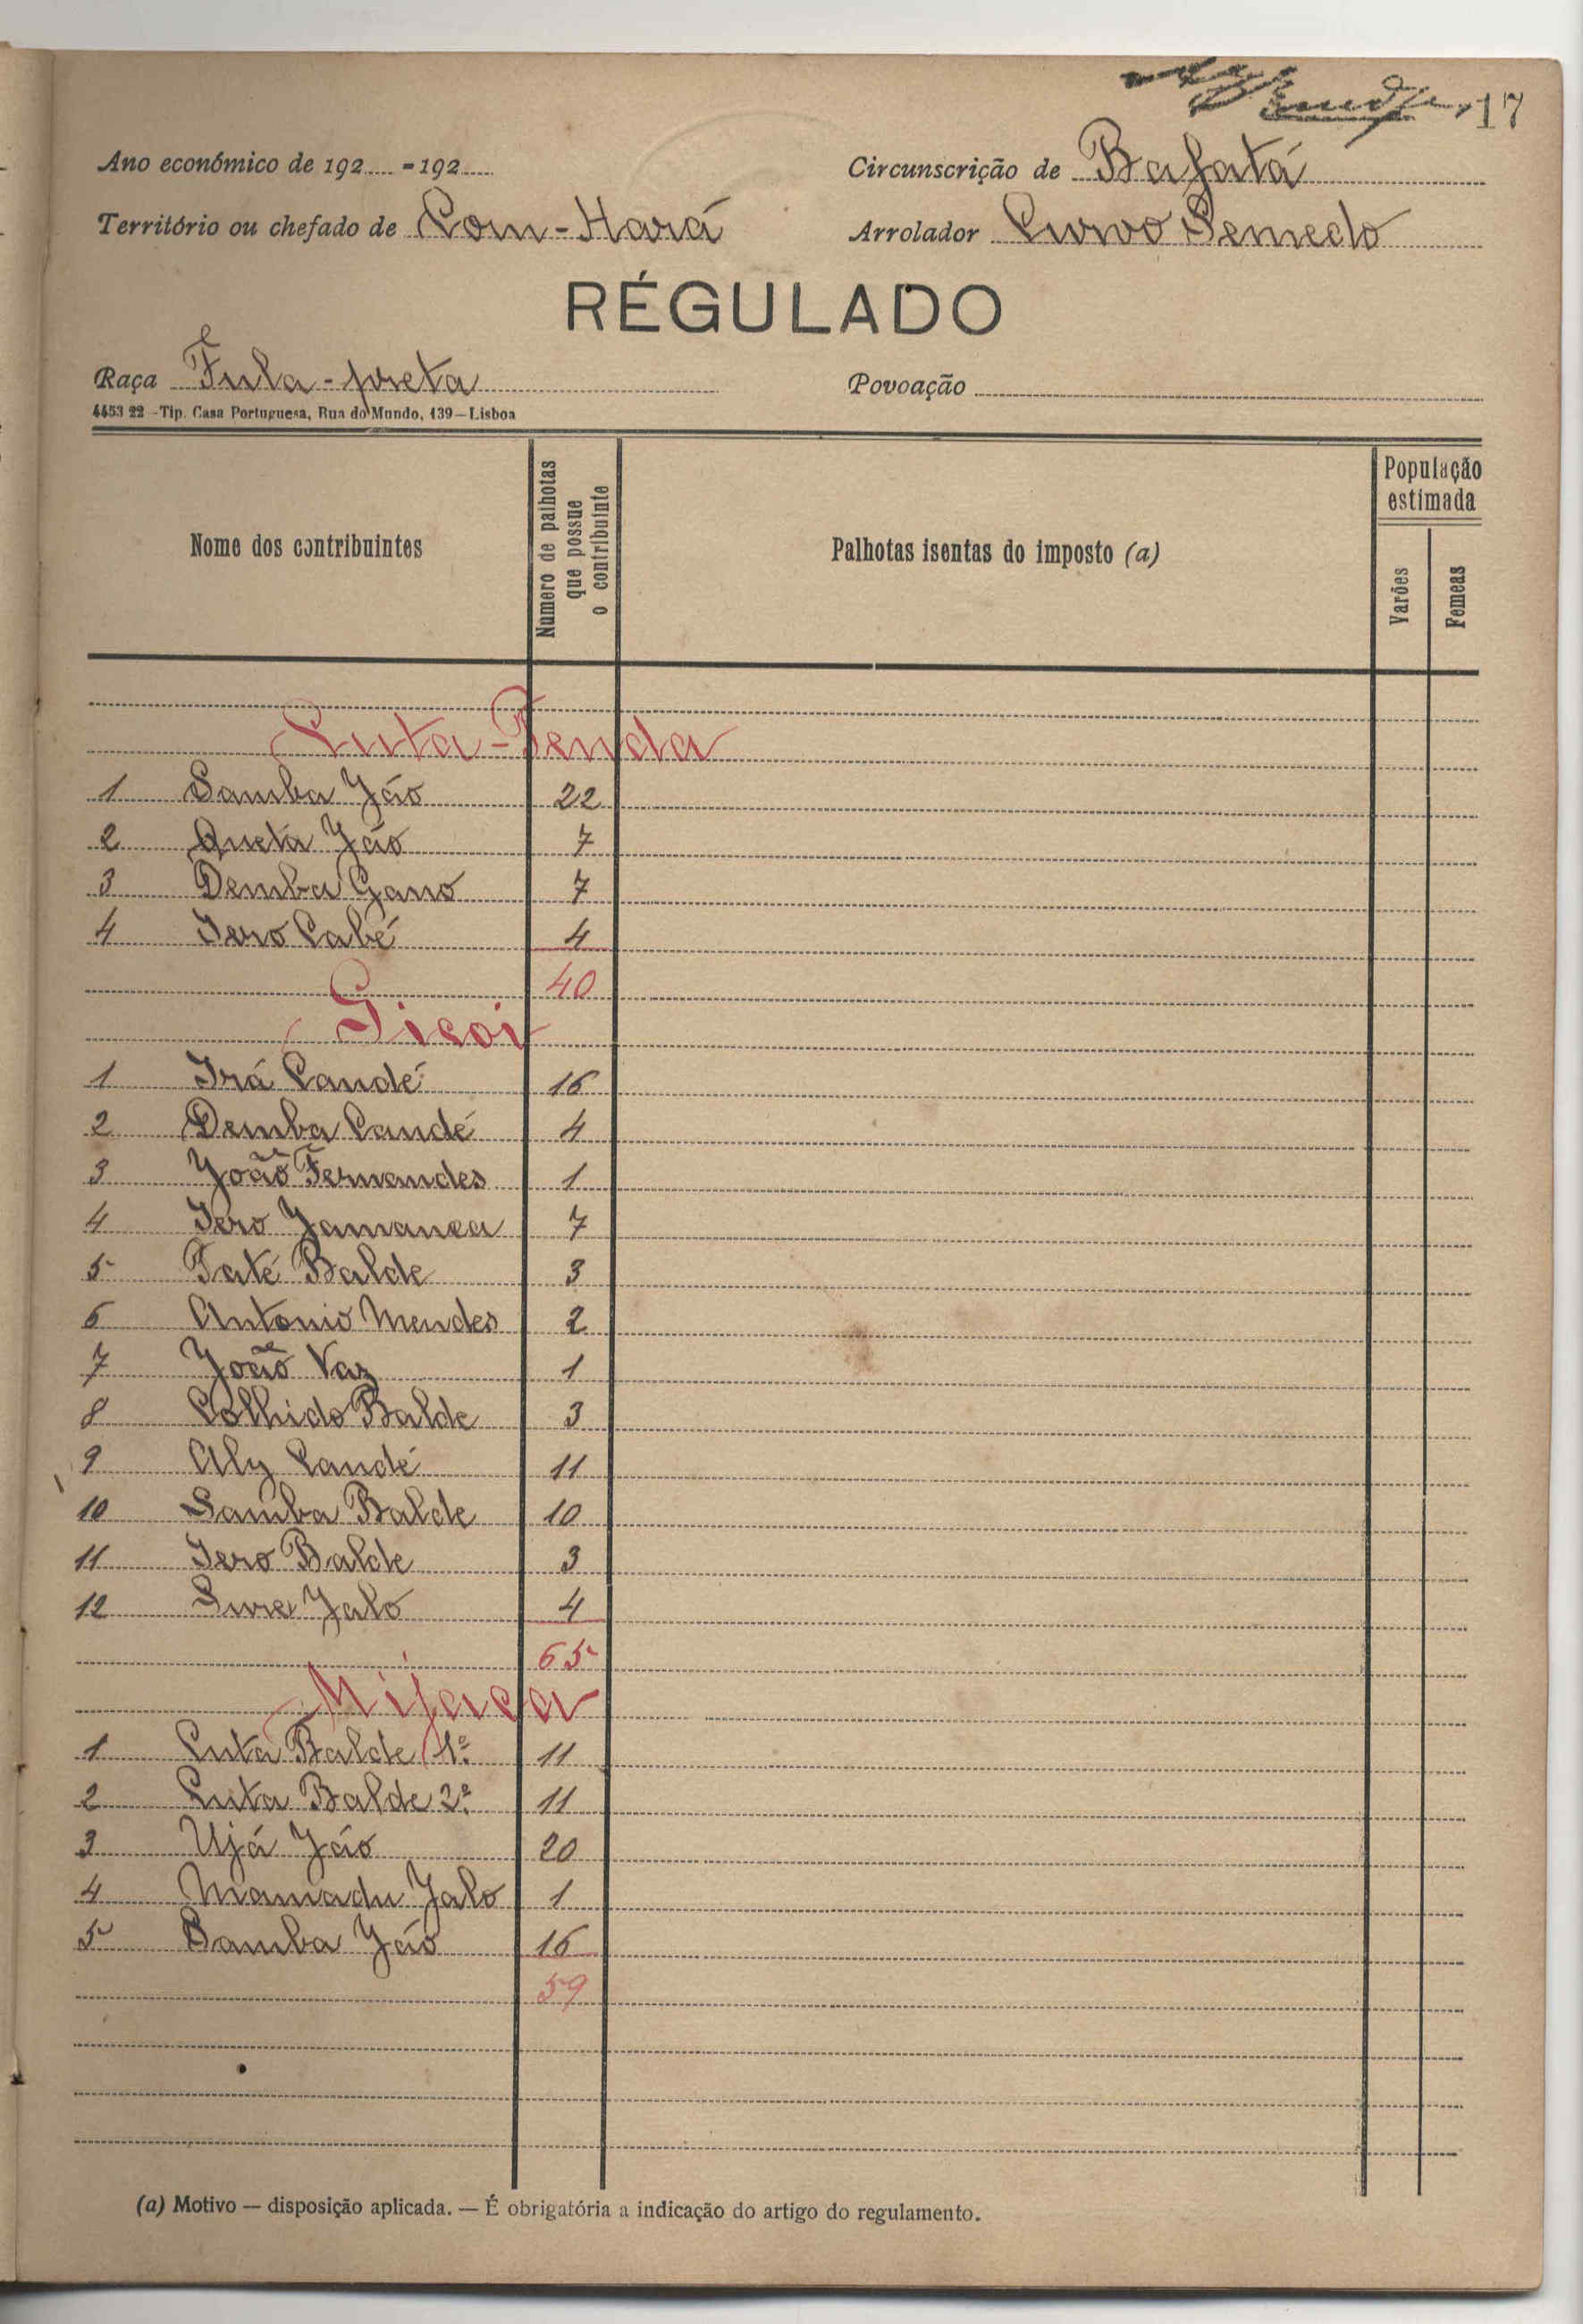 17
Ano económico de 192..... - 192.....
Circunscrição de Bafatá
Território ou chefado de Com-Hará
Arrolador Curvo Semedo
RÉGULADO
Raça Fula-preta
Povoação
4453 22 - Tip. Casa Portuguesa, Rua do Mundo, 139 - Lisboa
Nome dos contribuintes
Numero de palhotas que possue o contribuinte
Palhotas isentas do imposto (a)
População estimada
Varões
Femeas
Cuta-Tenda
1 Samba Jáo 22
2 Queta Jáo 7
3 Demba Gano 7
4 Iero Cabé 4
40
Sicoi
1 Irá Candé 16
2 Demba Candé 4
3 João Fernandes 1
4 Iero Jamanca 7
5 Taté Balde 3
6 Antonio Mendes 2
7 João Vaz 1
8 Colhido Balde 3
9 Aly Candé 11
10 Samba Balde 10
11 Iero Balde 3
12 Sure Jaló 4
65
Mijaca
1 Cuta Balde 1º 11
2 Cuta Balde 2º 11
3 Ujá Jáo 20
4 Mamadu Jalo 1
5 Samba Jáo 16
59
(a) Motivo — disposição aplicada. — É obrigatória a indicação do artigo do regulamento.